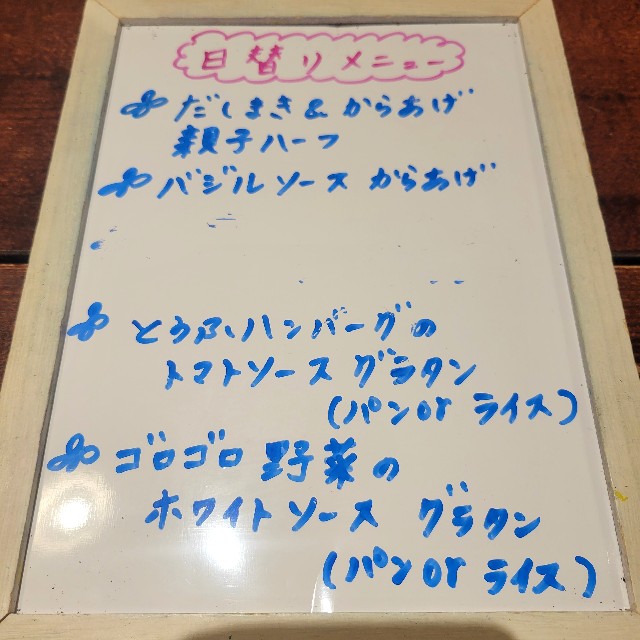 日替りメニュー
だしまき&からあげ
親子ハーフ
バジルソース からあげ
とうふハンバーグの
トマトソース グラタン
(パン or ライス)
ゴロゴロ 野菜の
ホワイトソース グラタン
(パン or ライス)